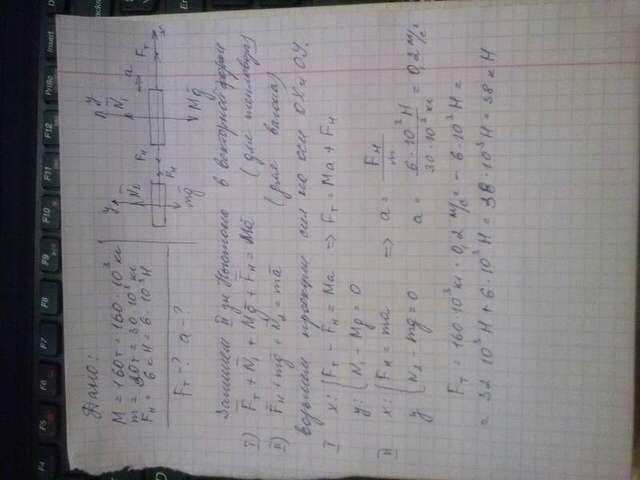 Дано:
M = 160т = 160·10³ кг
m = 30т = 30·10³ кг
Fн = 6 кН = 6·10³ Н
Fт - ? a - ?
y N₂ Fн Fн y N₁ a Fт x
mg Mg
Запишем II зн Ньютона в векторной форме
I) Fт + N₁ + Mg + Fн = Ma (для тепловоза)
II) Fн + mg + N₂ = ma (для вагона)
возьмем проекции сил на оси OX и OY.
I x: { Fт - Fн = Ma => Fт = Ma + Fн
y: { N₁ - Mg = 0
II x: { Fн = ma => a = Fн / m
y { N₂ - mg = 0 a = 6·10³ Н / 30·10³ кг = 0,2 м/с²
Fт = 160·10³ кг · 0,2 м/с² - 6·10³ Н =
= 32·10³ Н + 6·10³ Н = 38·10³ Н = 38 кН
Insert
PrtSc
F12
F11
F10
F9
F8
F7
F6
F5
F4